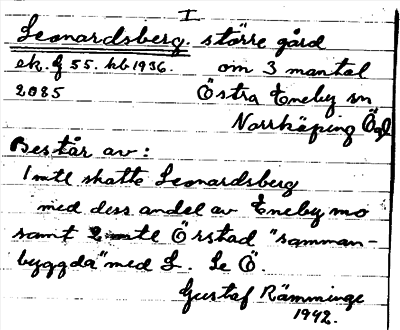 I
Leonardsberg. större gård
ek. f 55. hb 1936. om 3 mantal
2085 Östra Eneby sn
Norrköping Ögl
Består av:
1 mtl skatte Leonardsberg
med dess andel av Eneby mo
samt 2 mtl Örstad "samman-
byggda" med L. Se Ö.
Gustaf Rämminge
1942.